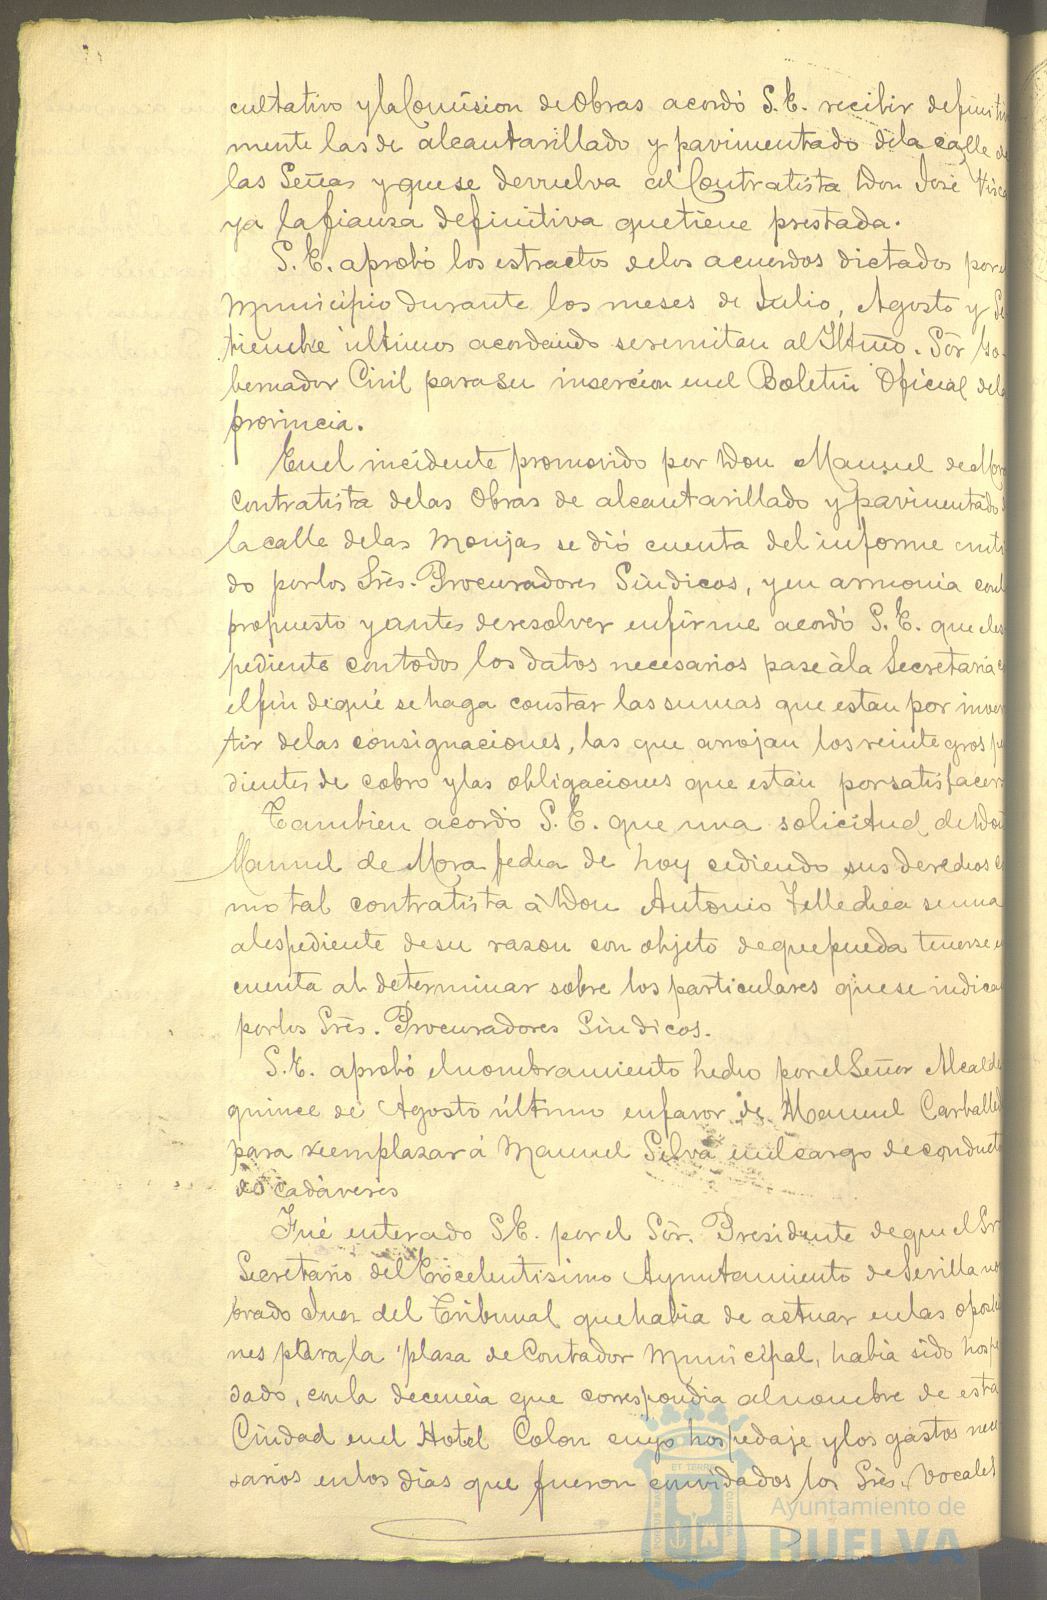 cultativo y la Comision de Obras acordó S.E. recibir definiti
mente las de alcantarillado y pavimentado de la calle de
las Señas y que se devuelva al Contratista Don José Visca
ya la fianza definitiva que tiene prestada.
S.E. aprobó los estractos de los acuerdos dictados por el
Municipio durante los meses de Julio, Agosto y Se
tiembre ultimos acordando se remitan al Iltmo. Sor Go-
bernador Civil para su insercion en el Boletin Oficial de la
provincia.
En el incidente promovido por Don Manuel de Mora
contratista de las Obras de alcantarillado y pavimentado
la calle de las Monjas se dió cuenta del informe emiti
do por los Sres. Procuradores Sindicos, y en armonia con lo
propuesto y antes de resolver en firme acordó S.E. que el es
pediente con todos los datos necesarios pase á la Secretaria
el fin de que se haga constar las sumas que estan por inver
tir de las consignaciones, las que arrojan los reintegros pe
dientes de cobro y las obligaciones que estan por satisfacer
Tambien acordó S.E. que una solicitud de Don
Manuel de Mora fecha de hoy cediendo sus derechos co
mo tal contratista á Don Antonio Tellechea se una
al espediente de su razon con objeto de que pueda tenerse en
cuenta al determinar sobre los particulares que se indica
por los Sres. Procuradores Sindicos.
S.E. aprobó el nombramiento hecho por el Señor Alcalde
quince de Agosto último en favor de Manuel Carballe
para reemplazar á Manuel Silva en el cargo de conduct
de cadáveres
Fué enterado S.E. por el Sor. Presidente de que el Sr
Secretario del Excelentisimo Ayuntamiento de Sevilla nom
brado Juez del Tribunal que habia de actuar en las oposi
nes para la plaza de Contador Municipal, habia sido hospe
dado, con la decencia que correspondia al nombre de esta
Ciudad en el Hotel Colon cuyo hospedaje y los gastos nece
sarios en los dias que fueron convidados los Sres. Vocales
Ayuntamiento de
HUELVA